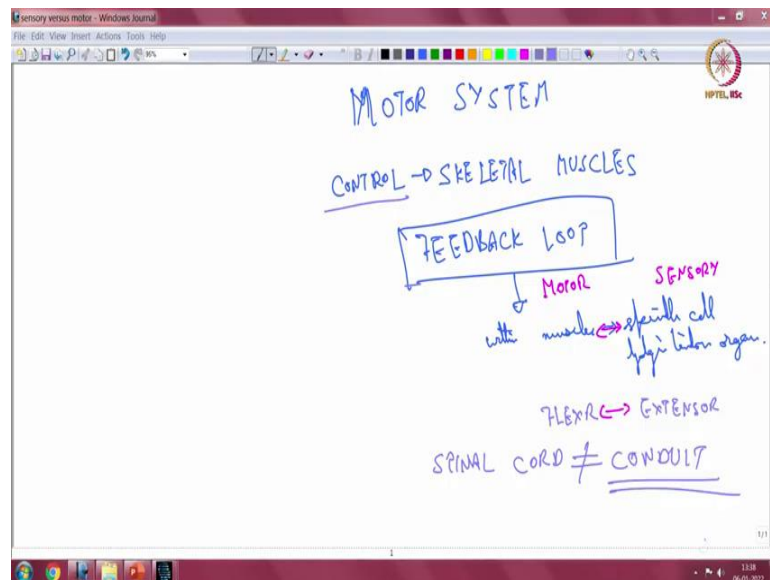 sensory versus motor - Windows Journal
File Edit View Insert Actions Tools Help
NPTEL, IISc
MOTOR SYSTEM
CONTROL → SKELETAL MUSCLES
FEEDBACK LOOP
MOTOR SENSORY
within muscles ↔ spindle cell
golgi tendon organ.
FLEXR ↔ EXTENSOR
SPINAL CORD ≠ CONDUIT
1/1
1
13:38
06-01-2022